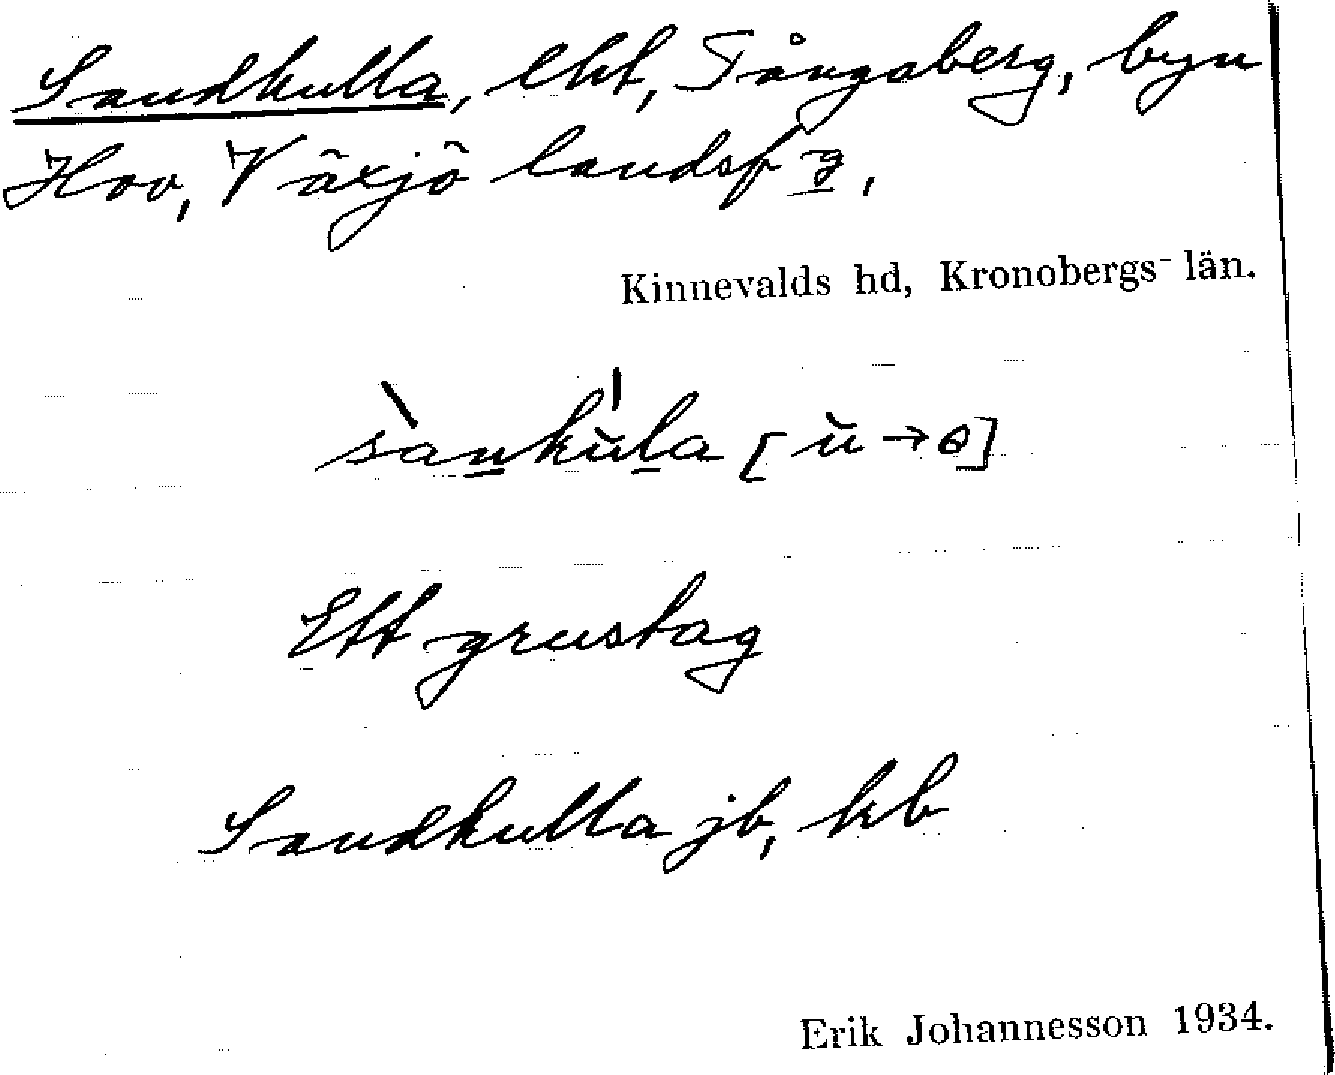 Sandkulla, lht, Tångaberg, byn
Hov, Växjö landsf g,
Kinnevalds hd, Kronobergs län.
sànkŭ́la [ŭ→ɵ]
Ett grustag
Sandkulla jb, hb
Erik Johannesson 1934.